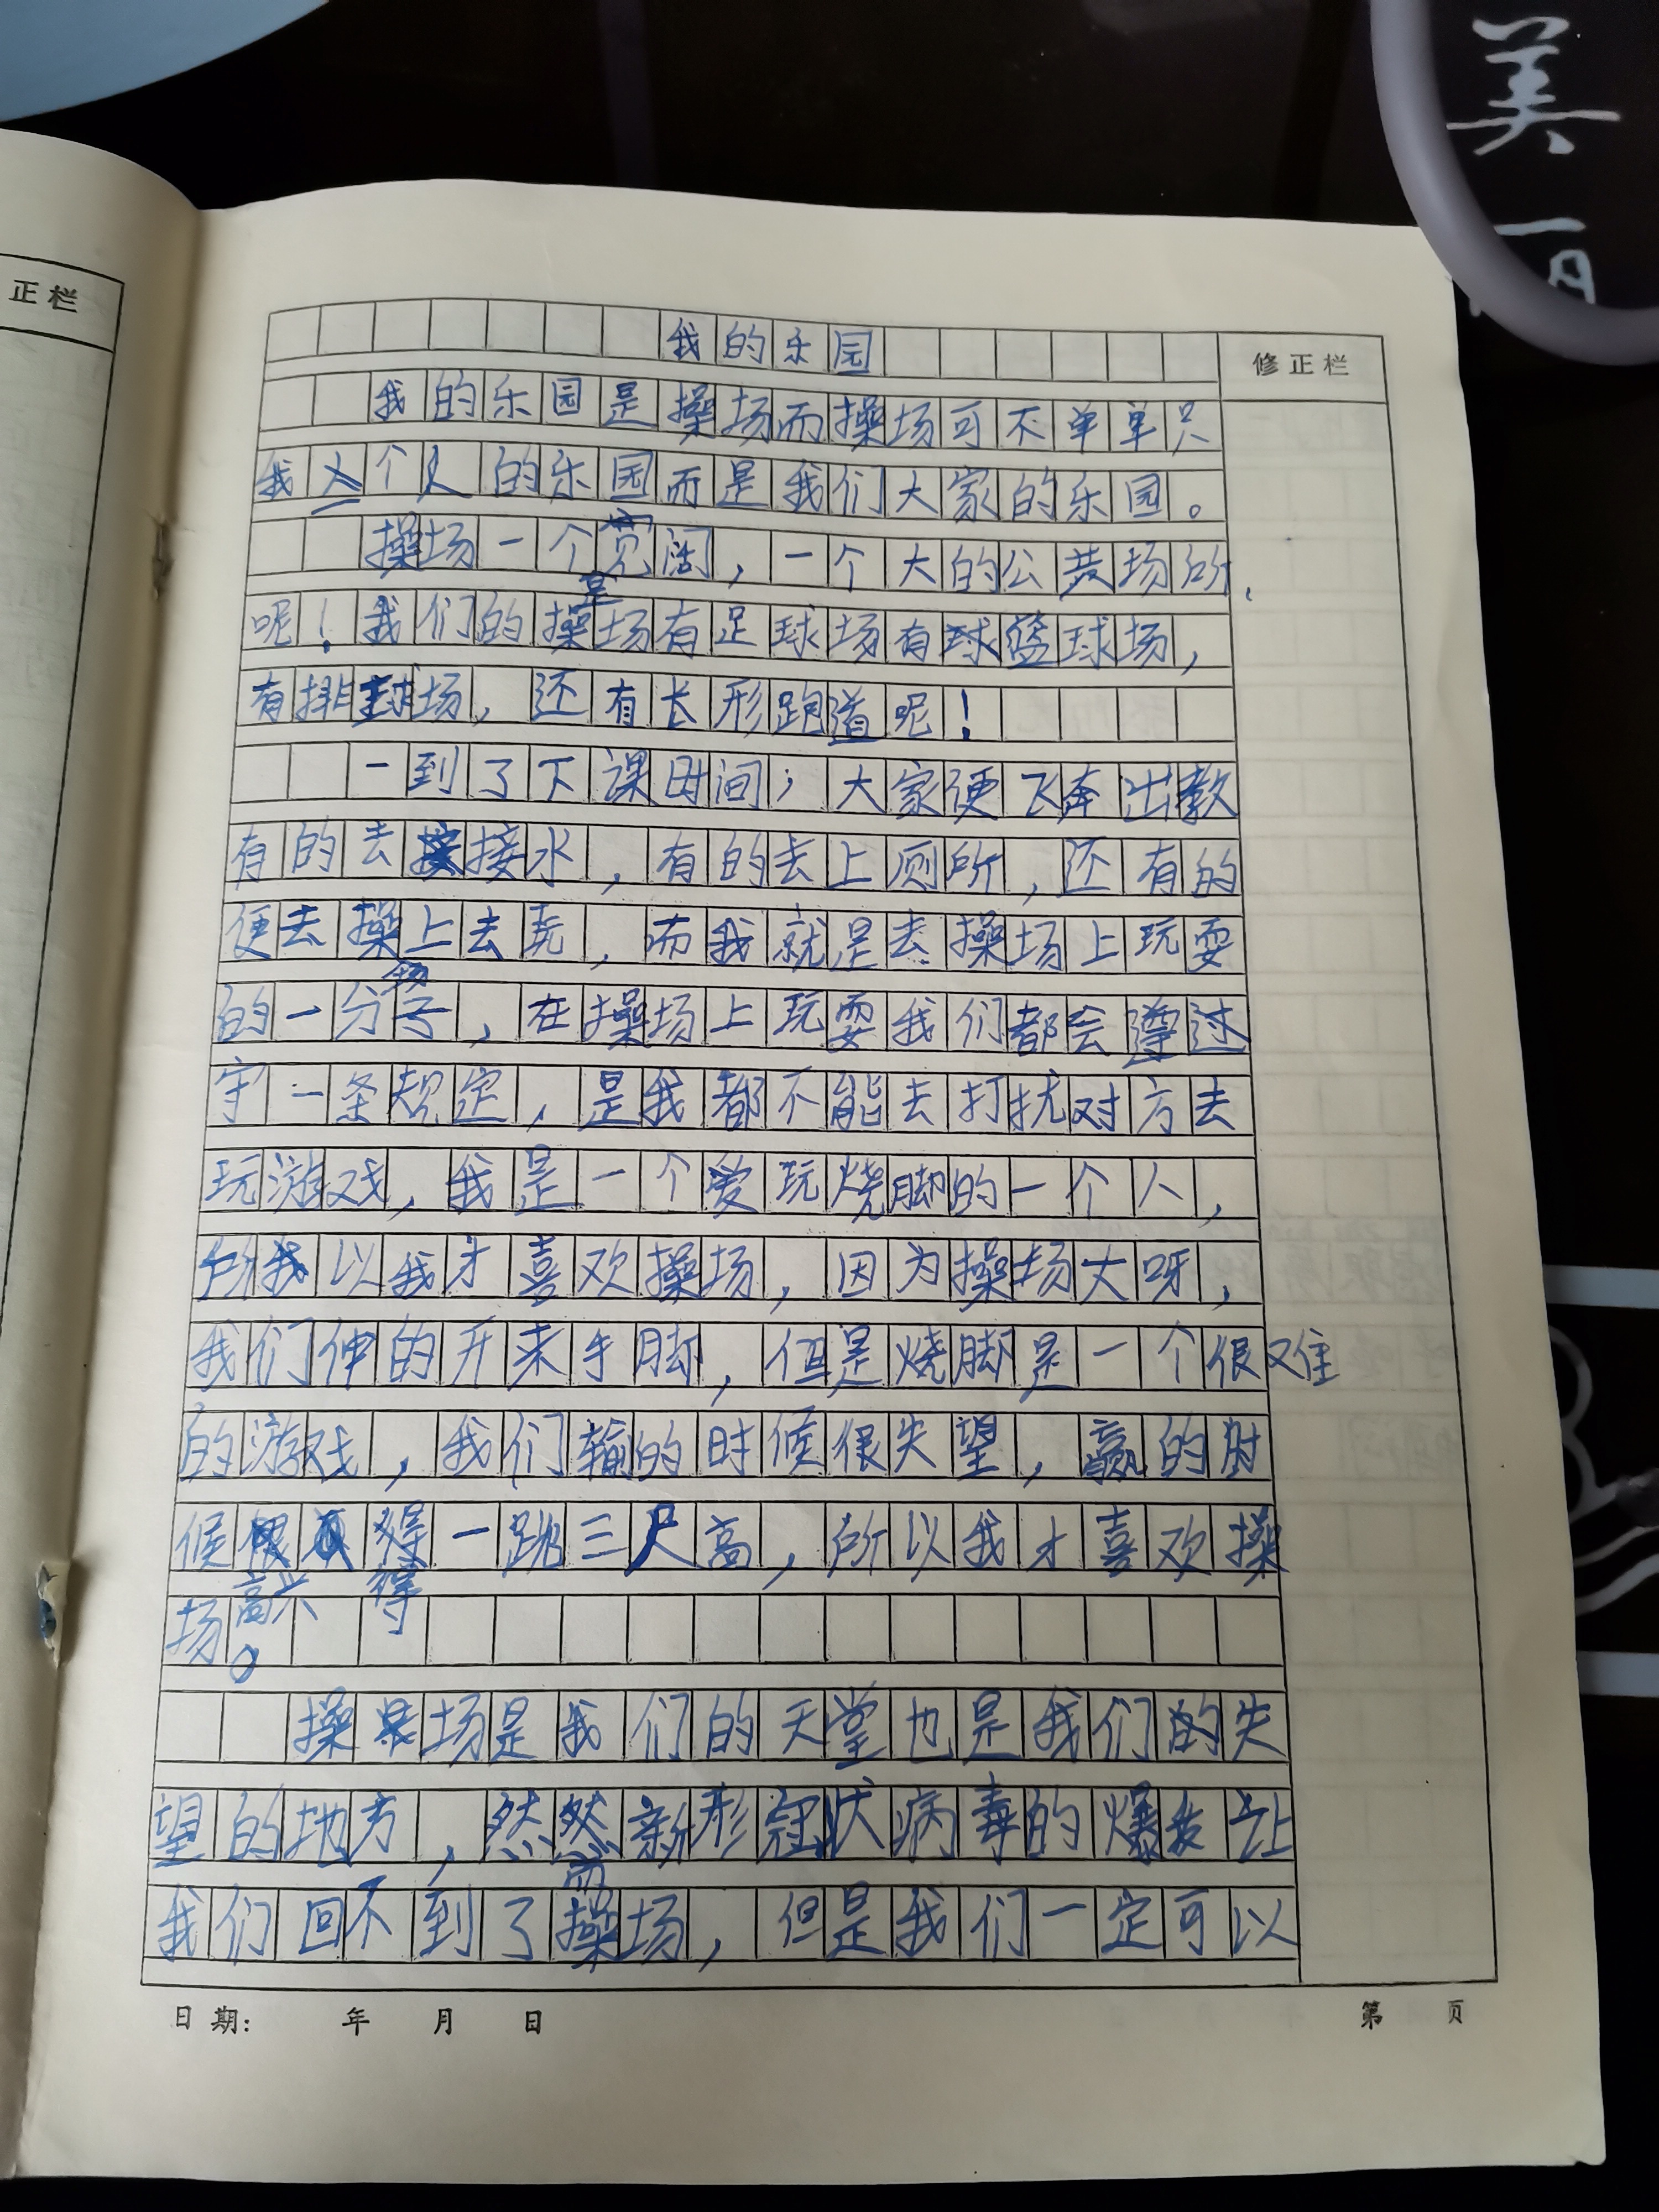 美
正栏
修正栏
我的乐园
我的乐园是操场而操场可不单单只
我个人的乐园而是我们大家的乐园。
操场一个宽阔，一个大的公共场所，
是
呢！我们的操场有足球场有球篮球场，
有排球场，还有长形跑道呢！
一到了下课时间，大家便飞奔出教
有的去接水，有的去上厕所，还有的
便去操上去玩，而我就是去操场上玩耍
场
的一分子，在操场上玩耍我们都会遵过
守一条规定，是我都不能去打扰对方去
玩游戏，我是一个爱玩烧脚的一个人，
所以我才喜欢操场，因为操场大呀，
我们伸的开来手脚，但是烧脚是一个很难
的游戏，我们输的时候很失望，赢的时
候得一跳三尺高，所以我才喜欢操
高兴 得
场。
操场是我们的天堂也是我们的失
望的地方，然然新形冠状病毒的爆发让
而
我们回不到了操场，但是我们一定可以
日期： 年 月 日
第 页